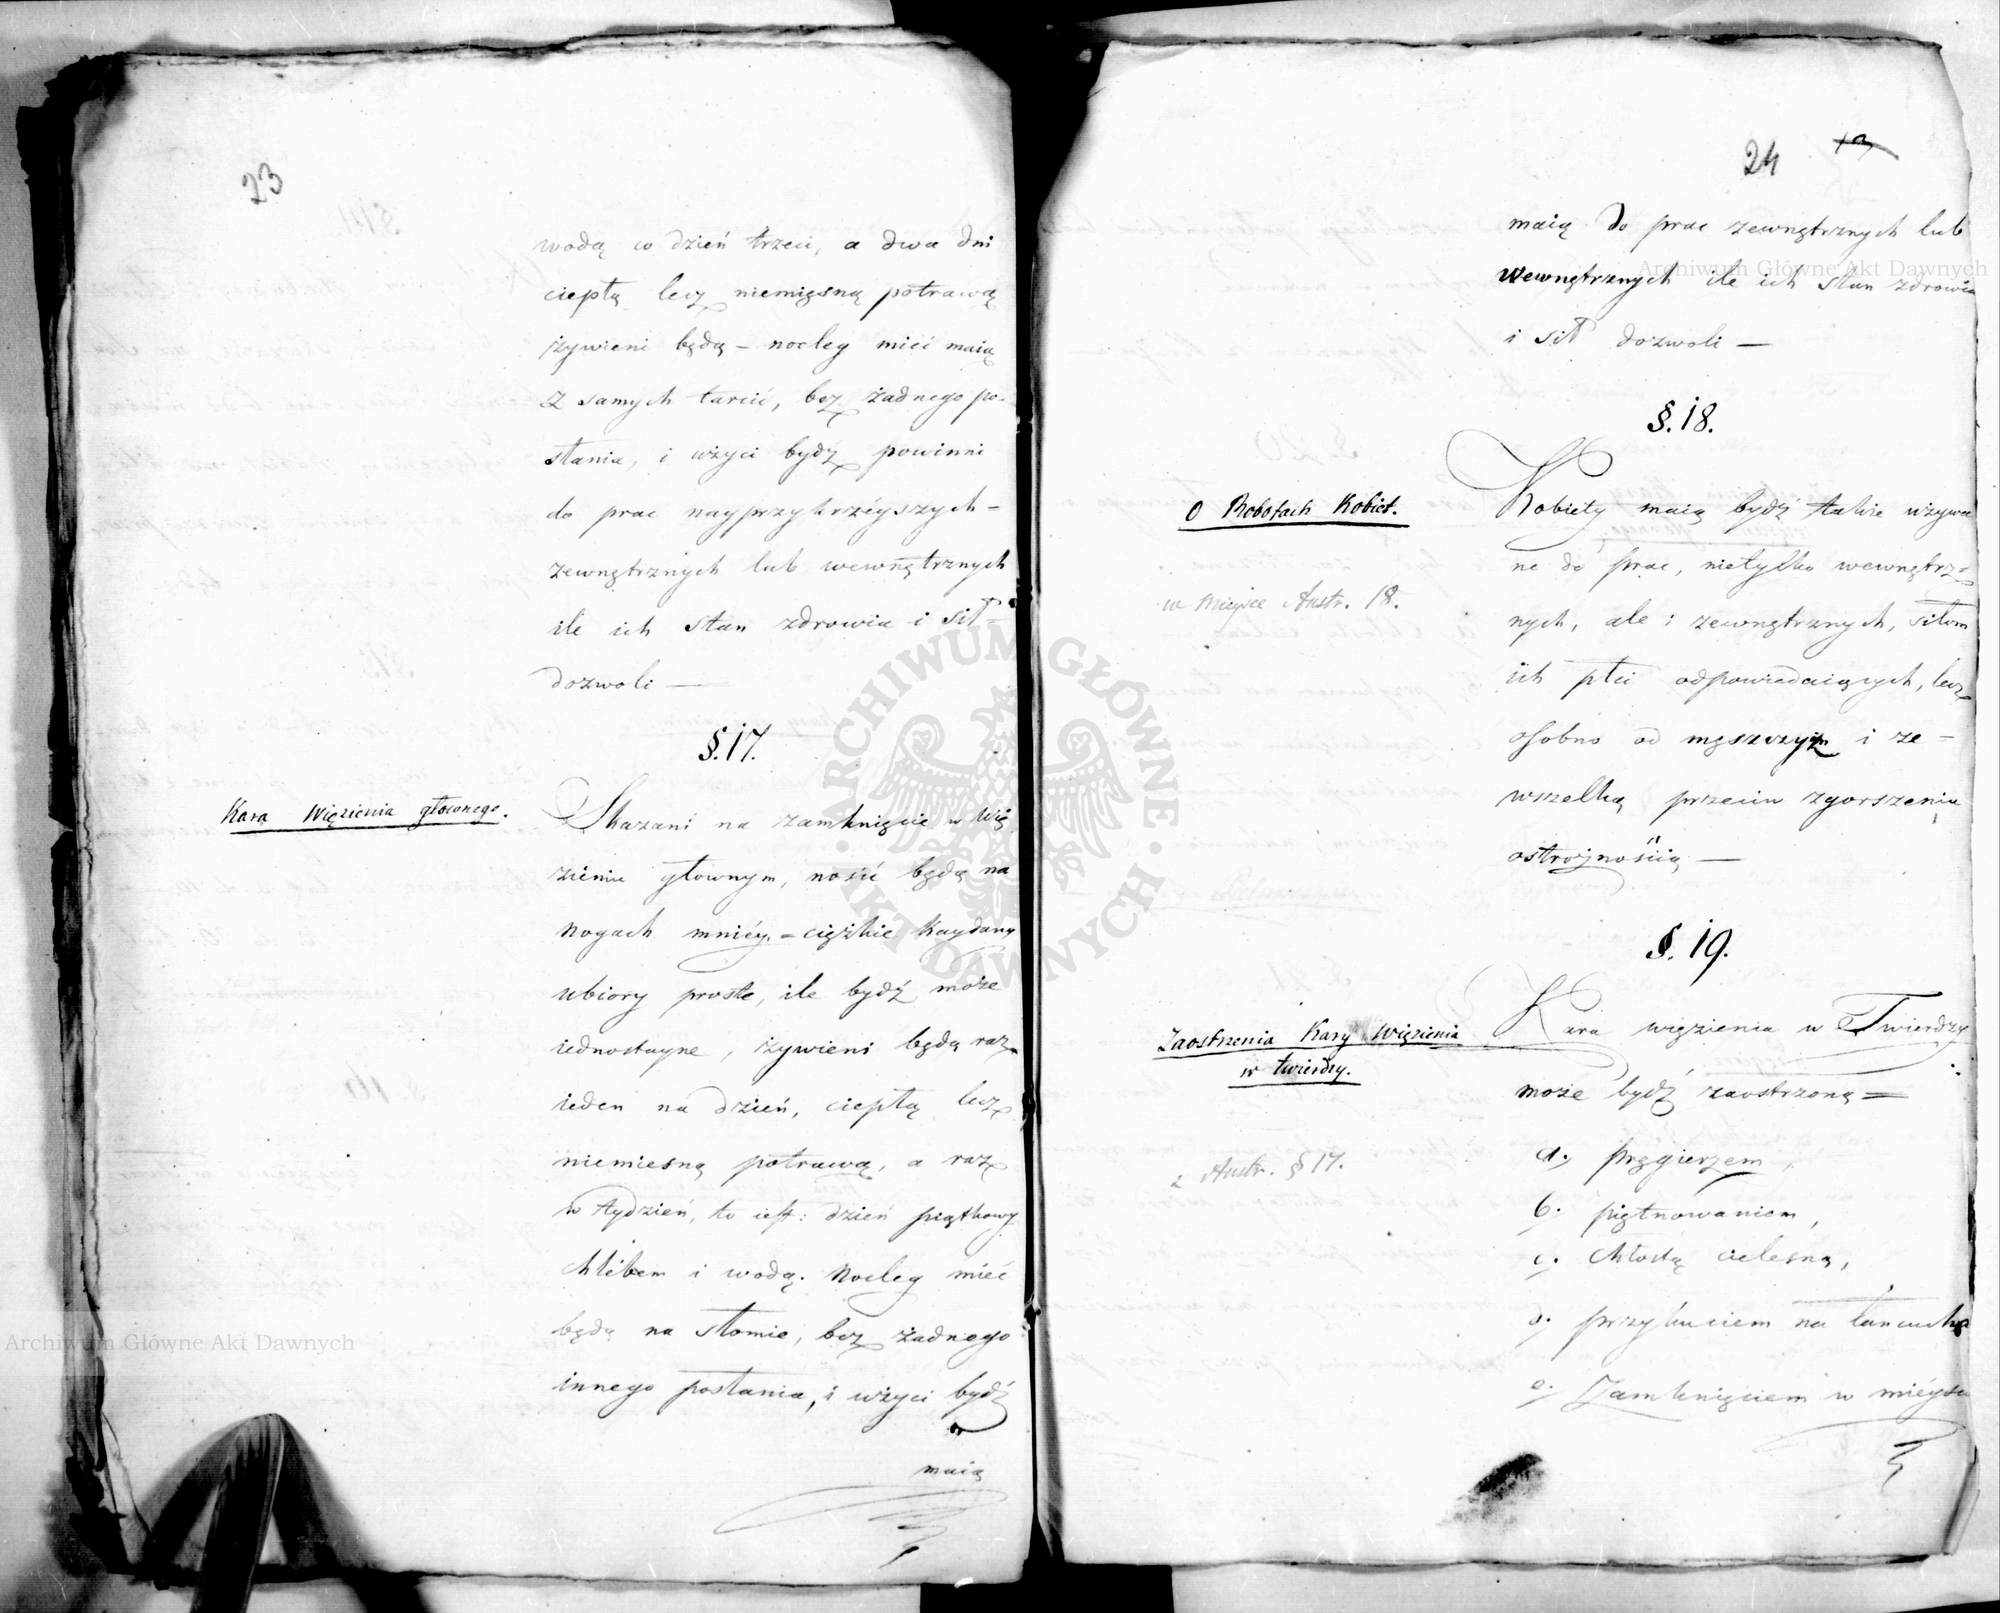 23
wodą w dzień trzeci, a dwa dni
ciepłą lecz niemięsną potrawą
żywieni będą – nocleg mieć maią
z samych tarcić, bez żadnego po-
słania, i użyci bydź powinni
do prac nayprzykrzéyszych –
zewnętrznych lub wewnętrznych
ile ich stan zdrowia i sił –
dozwoli —
§. 17.
Kara Więzienia głownego.
Skazani na zamknięcie w Wię
zieniu głownym, nosić będą na
nogach mniéy = cięzkie kaydany
ubiory proste, ile bydź może
iednostayne, żywieni będą raz
ieden na dzień, ciepłą lecz
niemiesną potrawą, a raz
w tydzień, to iest: dzień piątkowy
chlébem i wodą. Nocleg mieć
będą na słomie, bez żadnego
innego posłania, i użyci bydź
maią
24 13
maią do prac zewnętrznych lub
wewnętrznych ile ich stan zdrowia
i sił dozwoli —
§. 18.
O Robotach Kobiet.
w miejsce Austr. 18.
Kobiety maią bydź także używa
ne do prac, nietylko wewnętrz=
nych, ale i zewnętrznych, siłom
ich płci odpowiedaiących, lecz
osobno od męszczyzn i ze –
wszelką przeciw zgorszeniu
ostrożnością —
§. 19.
Zaostrzenia Kary Więzienia
w twierdzy.
z Austr. § 17.
Kara więzienia w Twierdzy
może bydź zaostrzoną =
a. pręgierzem,
b. piętnowaniem,
c. chłostą cielesną,
d. przykuciem na łancucha
e. Zamknięciem w mieysc
Archiwum Główne Akt Dawnych
Archiwum Główne Akt Dawnych
ARCHIWUM GŁÓWNE
AKT DAWNYCH